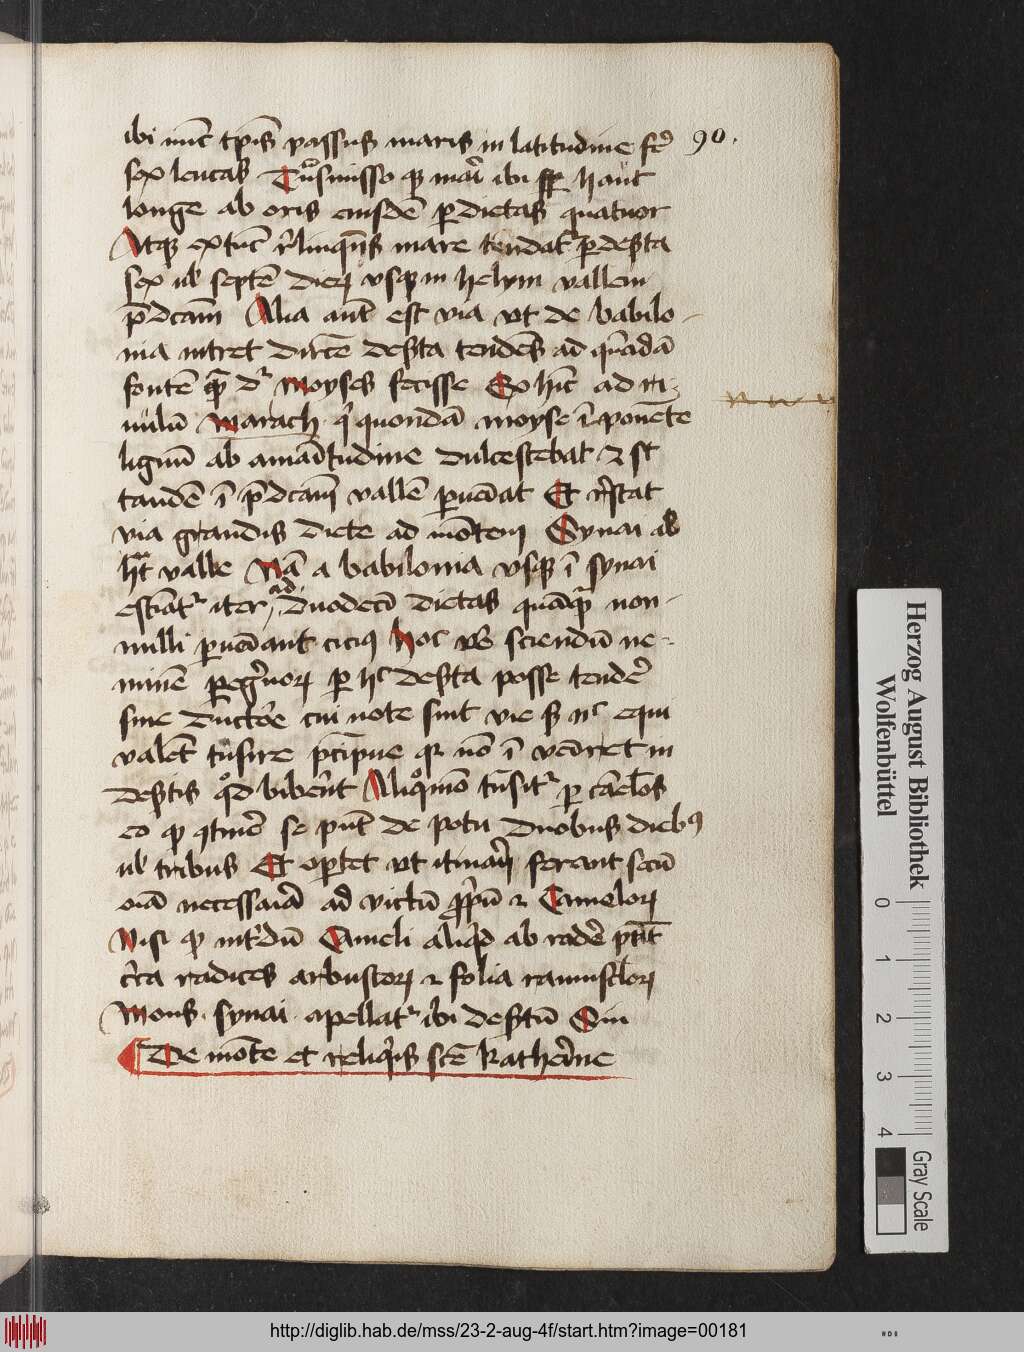 ibi nūc tp̄is passus maris in latitudine fe᷒ 90.
sex leucas Tn̄smisso qꝫ mari ibi ꝑ haut
longe ab oris eiusdē ꝑ dietas quatuor
Atqꝫ extūc r̄linqn̄s mare tendat᷒ ꝑ desta
sex ul septē dieꝝ vsqꝫ in helym vallem
p̄dcam Alia aūt est via vt de babilo-
nia intret dircē desta tendēs ad quādā
fontē quā dr Moyses fecisse Ex hīc ad ri-
uulū Marach q quondā moyse īponēte
lignū ab amāitudine dulcescebat ⁊ sic
tandē ī p̄dcam vallē ꝑueāat Et r̄stat
via grandis diete ad mōtem Synai ab
hac valle Nā a babilonia vsqꝫ ī synai
estīat᷒ iter ad duodecī dietas quāqꝫ non-
nulli ꝑueāant cicius Hoc v° sciendū ne-
minē ꝑegrinoꝝ ꝑ hec desta posse tende᷒
sine ductore cui note sint vie sꝫ nec equi
valēt tn̄sire p̄cipue qꝛ nō ī veāret in
destis qd biberēt Aliqn̄o tn̄sit᷒ ꝑ camelos
eo qꝫ qtine᷒ se pn̄t de potu duobus diebꝰ
ul tribus Et oportet vt itinātes ferant secū
oīa necessaria ad victū ꝓpriū ⁊ Cameloꝝ
Nisi qꝫ int᷒dū Cameli aliqd ab rade᷒ pn̄t
cīca radices arbustoꝝ ⁊ folia ramuscloꝝ
Mons synai apellat᷒ ibi destū Sin
De mōte et reliquis scē Katherine
Herzog August Bibliothek
Wolfenbüttel
0 1 2 3 4
Gray Scale
http://diglib.hab.de/mss/23-2-aug-4f/start.htm?image=00181